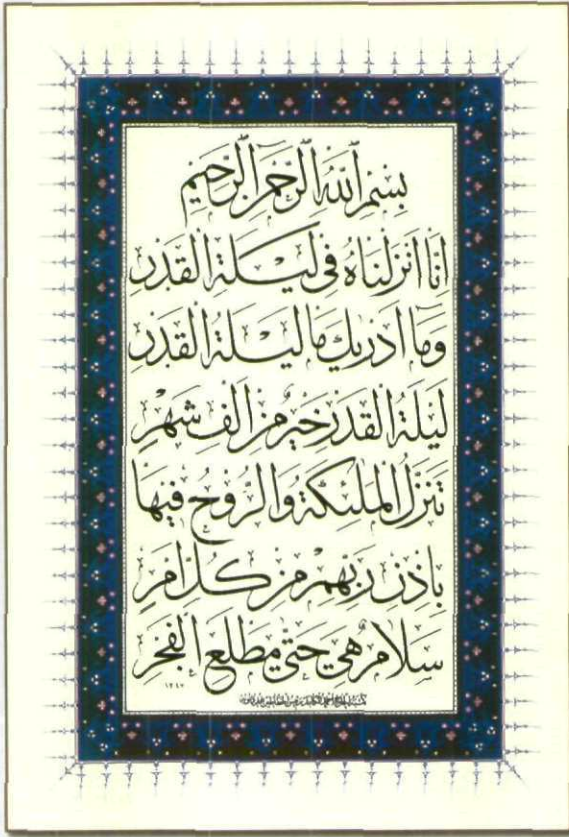 بِسْمِ ٱللّٰهِ ٱلرَّحْمٰنِ ٱلرَّحِيمِ
اِنَّا اَنْزَلْنَاهُ فِى لَيْلَةِ الْقَدْرِ
وَمَا اَدْرٰيكَ مَا لَيْلَةُ الْقَدْرِ
لَيْلَةُ الْقَدْرِ خَيْرٌ مِنْ اَلْفِ شَهْرٍ
تَنَزَّلُ الْمَلٰئِكَةُ وَالرُّوحُ فِيهَا
بِاِذْنِ رَبِّهِمْ مِنْ كُلِّ اَمْرٍ
سَلَامٌ هِىَ حَتّٰى مَطْلَعِ الْفَجْرِ